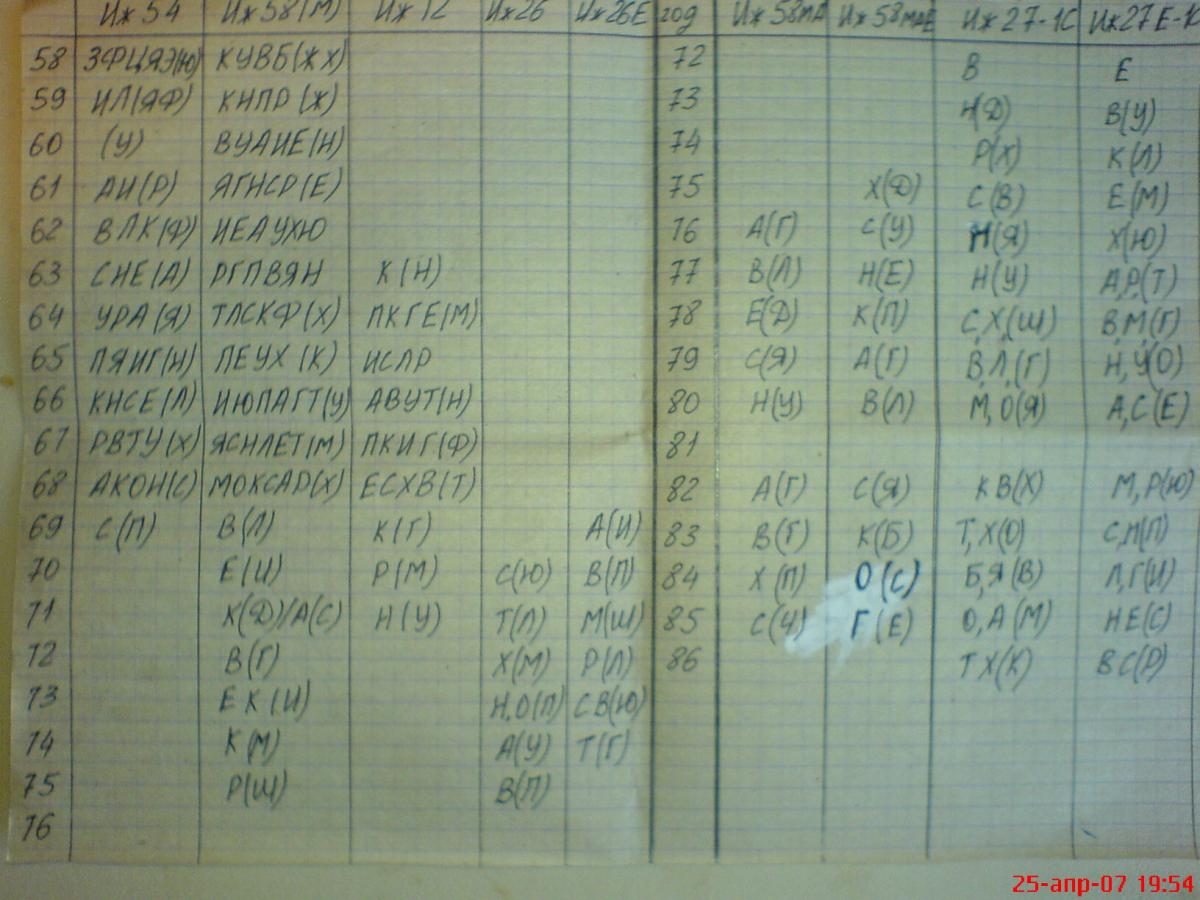 Иж 54 Иж 58(М) Иж 12 Иж26 Иж26Е год Иж 58МА Иж 58МАЕ Иж 27-1С Иж27Е-1С
58 ЗФЦЯЭ(Ю) КУВБ(ЖХ) 72 В Е
59 ИЛ(ЯФ) КНПР(Ж) 73 Н(Д) В(У)
60 (У) ВУАИЕ(Н) 74 Р(Х) К(Л)
61 АИ(Р) ЯГНСР(Е) 75 Х(Д) С(В) Е(М)
62 ВЛК(Ф) ИЕАУХЮ 76 А(Г) С(У) (Я) Х(Ю)
63 СНЕ(А) РГПВЯН К(Н) 77 В(Л) Н(Е) Н(У) А,Р,(Т)
64 УРА(Я) ТЛСКФ(Х) ПКГЕ(М) 78 Е(Д) К(П) С,Х,(Ш) В,М,(Г)
65 ПЯИГ(Н) ПЕУХ(К) ИСЛР 79 С(Я) А(Г) В,Л,(Г) Н,У(О)
66 КНСЕ(Л) ИЮПАГТ(У) АВУТ(Н) 80 Н(У) В(Л) М,О(Я) А,С(Е)
67 РВТУ(Х) ЯСНЛЕТ(М) ПКИГ(Ф) 81
68 АКОН(С) МОКСАР(Х) ЕСХВ(Т) 82 А(Г) С(Я) КВ(Х) М,Р(Ю)
69 С(П) В(Л) К(Г) А(И) 83 В(Г) К(Б) Т,Х(О) С,Н(П)
70 Е(И) Р(М) С(Ю) В(П) 84 Х(П) О(С) Б,Я(В) Л,Г(И)
71 К(Д)/А(С) Н(У) Т(Л) М(Ш) 85 С(Ч) Г(Е) О,А(М) НЕ(С)
72 В(Г) Х(М) Р(Л) 86 ТХ(К) ВС(Р)
73 ЕК(И) Н,О(П) СВ(Ю)
74 К(М) А(У) Т(Г)
75 Р(Ш) В(П)
76
25-апр-07 19:54